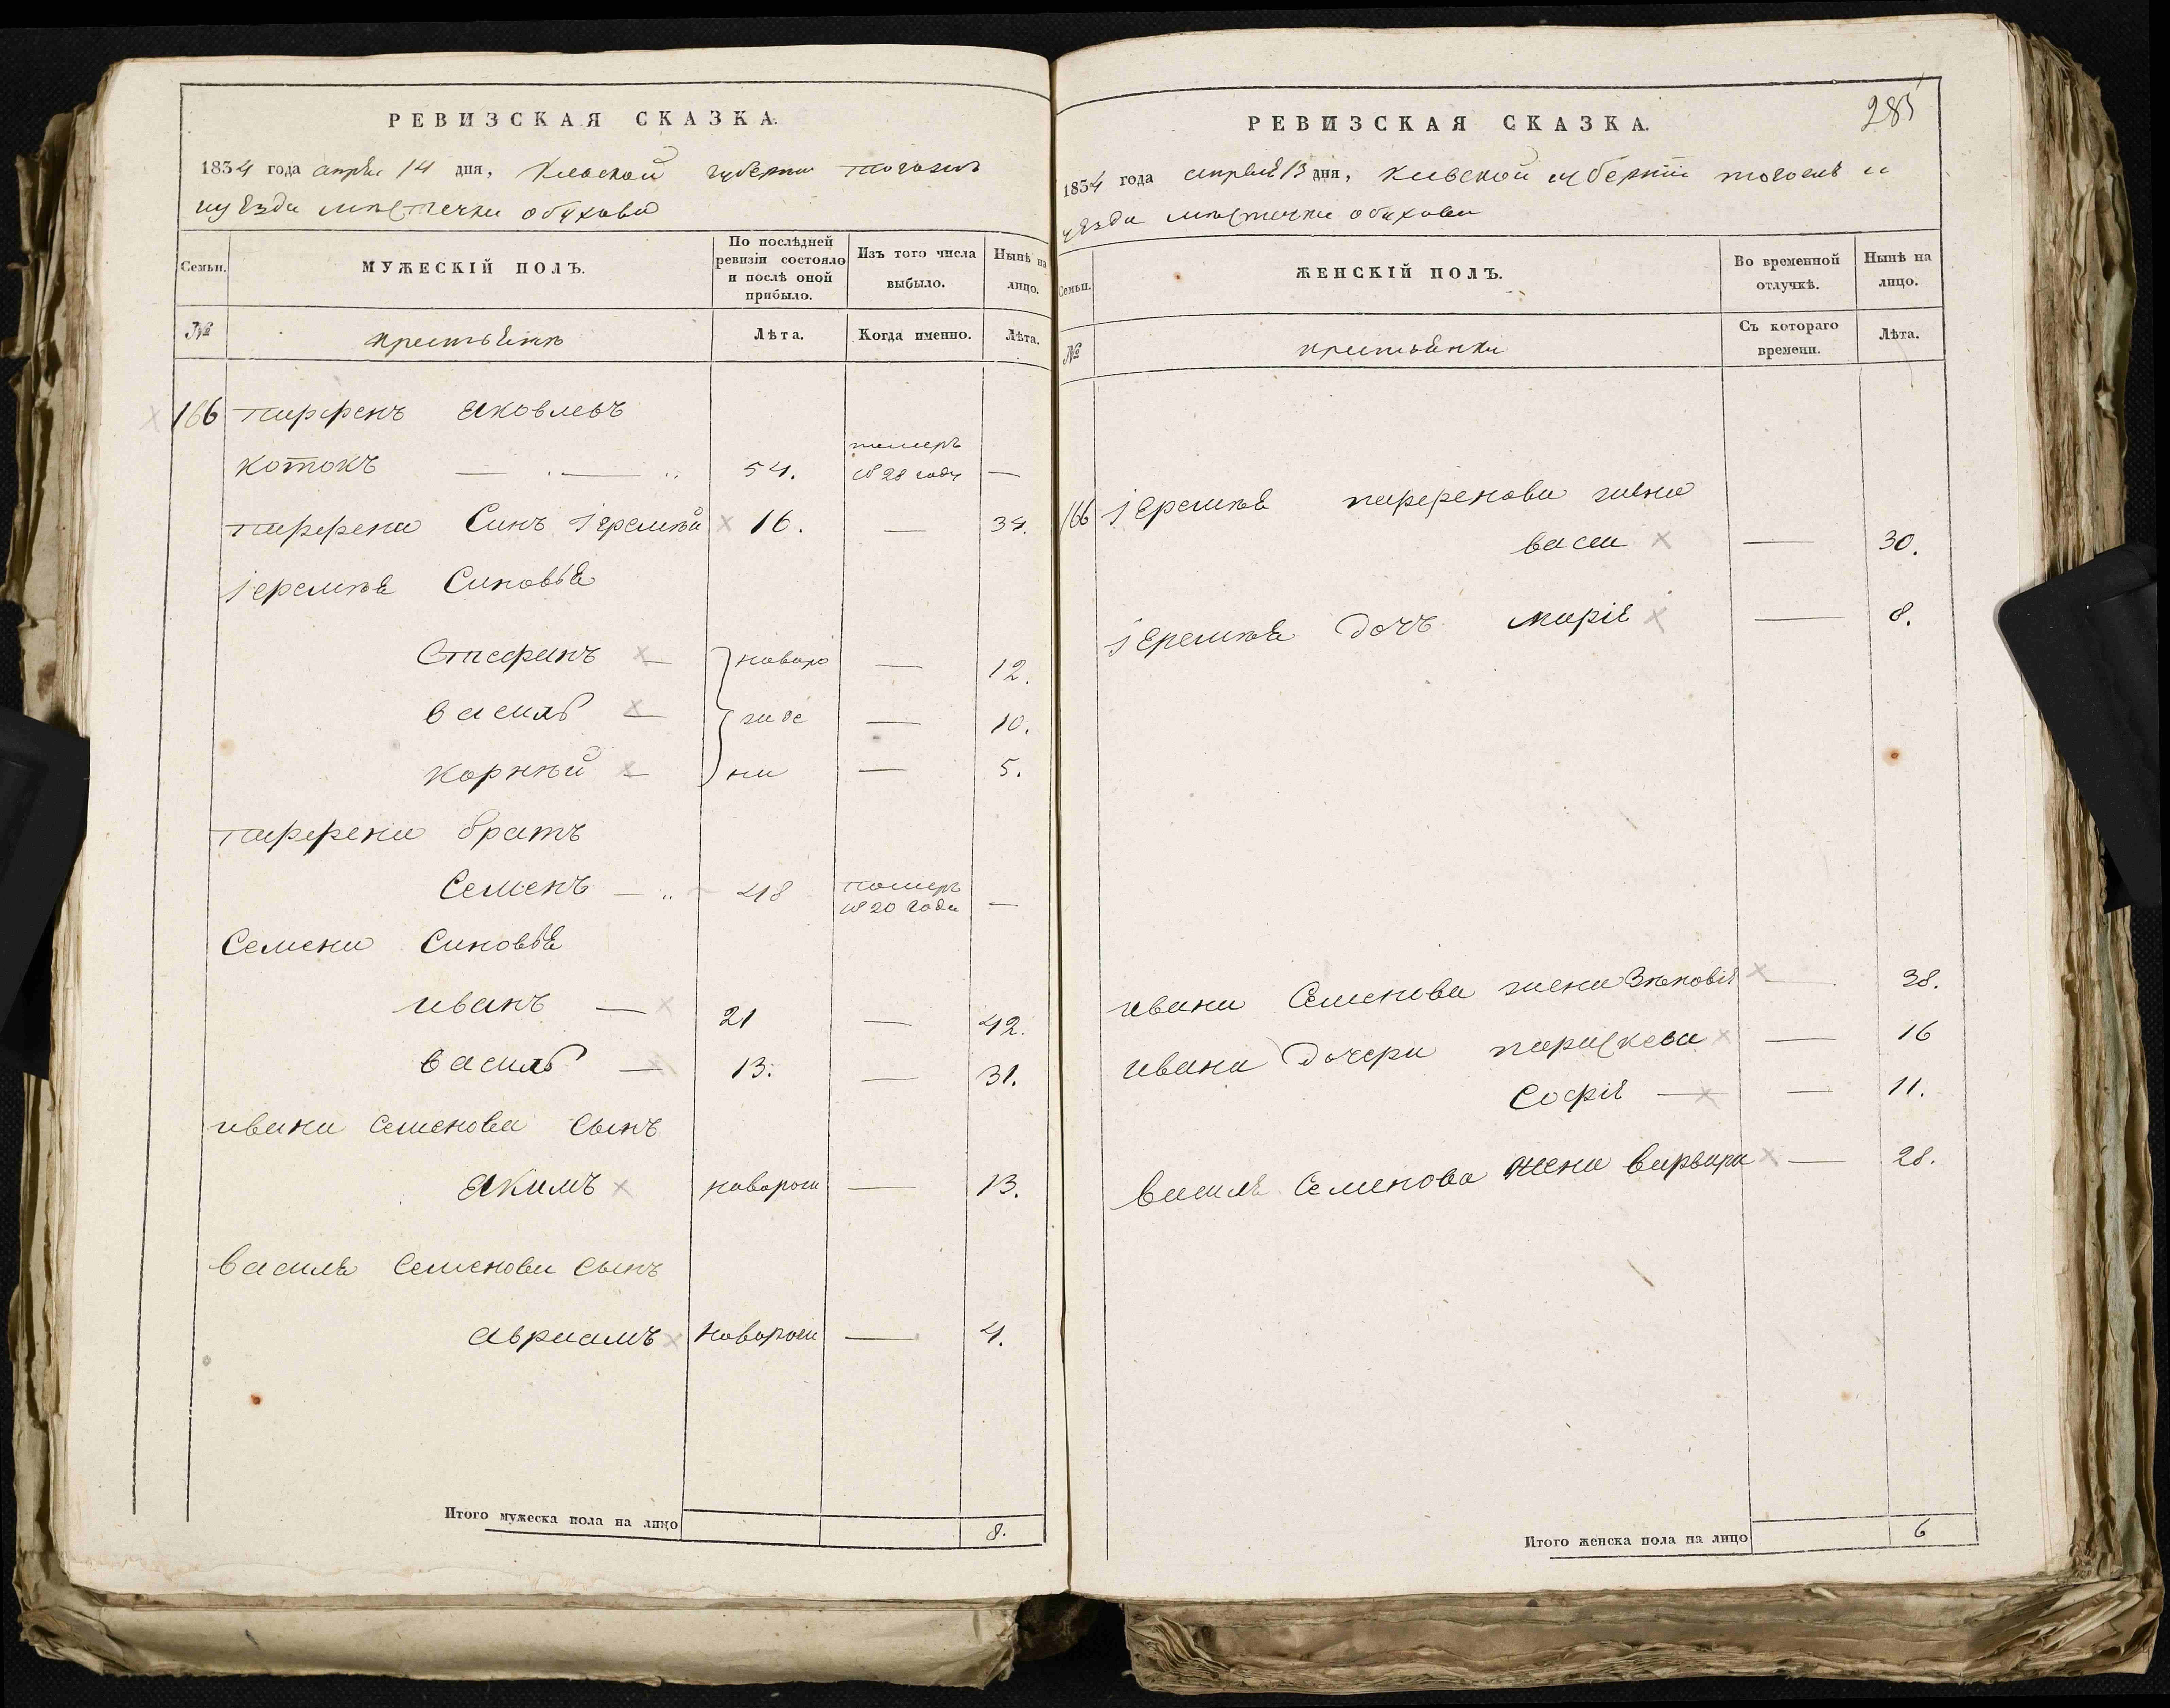 РЕВИЗСКАЯ СКАЗКА.
1834 года апрѣля 14 дня, Киевской губернии тогожъ
уѣзда мѣстечка обухова
Семьи.
МУЖЕСКІЙ ПОЛЪ.
По послѣдней ревизіи состояло и послѣ оной прибыло.
Изъ того числа выбыло.
Нынѣ на лицо.
№
крестьяне
Лѣта.
Когда именно.
Лѣта.
166 парфенъ яковлевъ
котокъ 54. померъ 1828 году —
парфена Синъ іеремѣй 16. — 34.
іеремѣя Синовья
Стефанъ — новоро — 12.
василь — жде — 10.
корнѣй — ни — 5.
парфена братъ
Семенъ — 48 померъ 1820 года —
Семена Синовья
иванъ — 21 — 42.
василь — 13. — 31.
ивана Семенова сынъ
якимъ новорож — 13.
василя Семенова сынъ
авраамъ новорож — 4.
Итого мужеска пола на лицо 8.
285
РЕВИЗСКАЯ СКАЗКА.
1834 года апреля 13 дня, киевской губерніи тогожъ и
уѣзда мѣстечка обухова
Семьи.
ЖЕНСКІЙ ПОЛЪ.
Во временной отлучкѣ.
Нынѣ на лицо.
№
крестьянки
Съ котораго времени.
Лѣта.
166 іеремѣя парфенова жена
васса — 30.
іеремѣя дочь марія — 8.
ивана Семенова жена Зѣновія — 38.
ивана дочери параскева — 16
Софія — — 11.
василя Семенова жена варвара — 28.
Итого женска пола на лицо 6